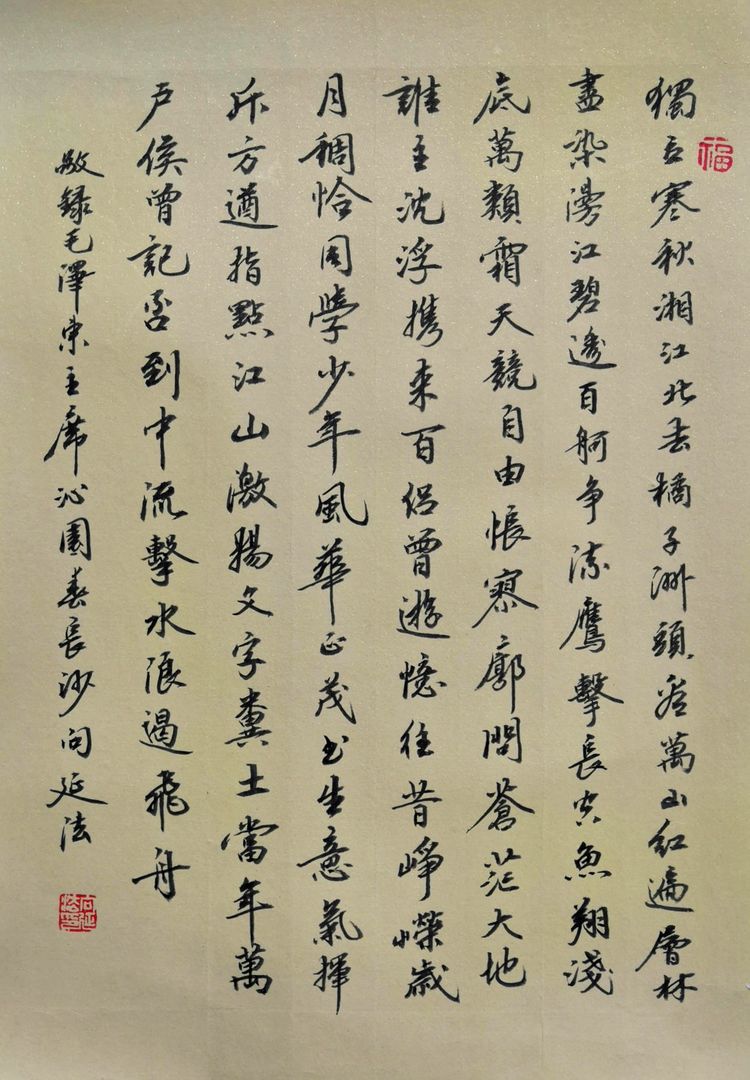 福
獨立寒秋湘江北去橘子洲頭看萬山紅遍層林
盡染漫江碧透百舸争流鷹擊長空魚翔淺
底萬類霜天競自由悵寥廓問蒼茫大地
誰主沈浮携來百侣曾遊憶往昔崢嶸歲
月稠恰同學少年風華正茂书生意氣揮
斥方遒指點江山激揚文字糞土當年萬
戶侯曾記否到中流擊水浪遏飛舟
敬録毛澤東主席沁園春長沙向延法
向延法印